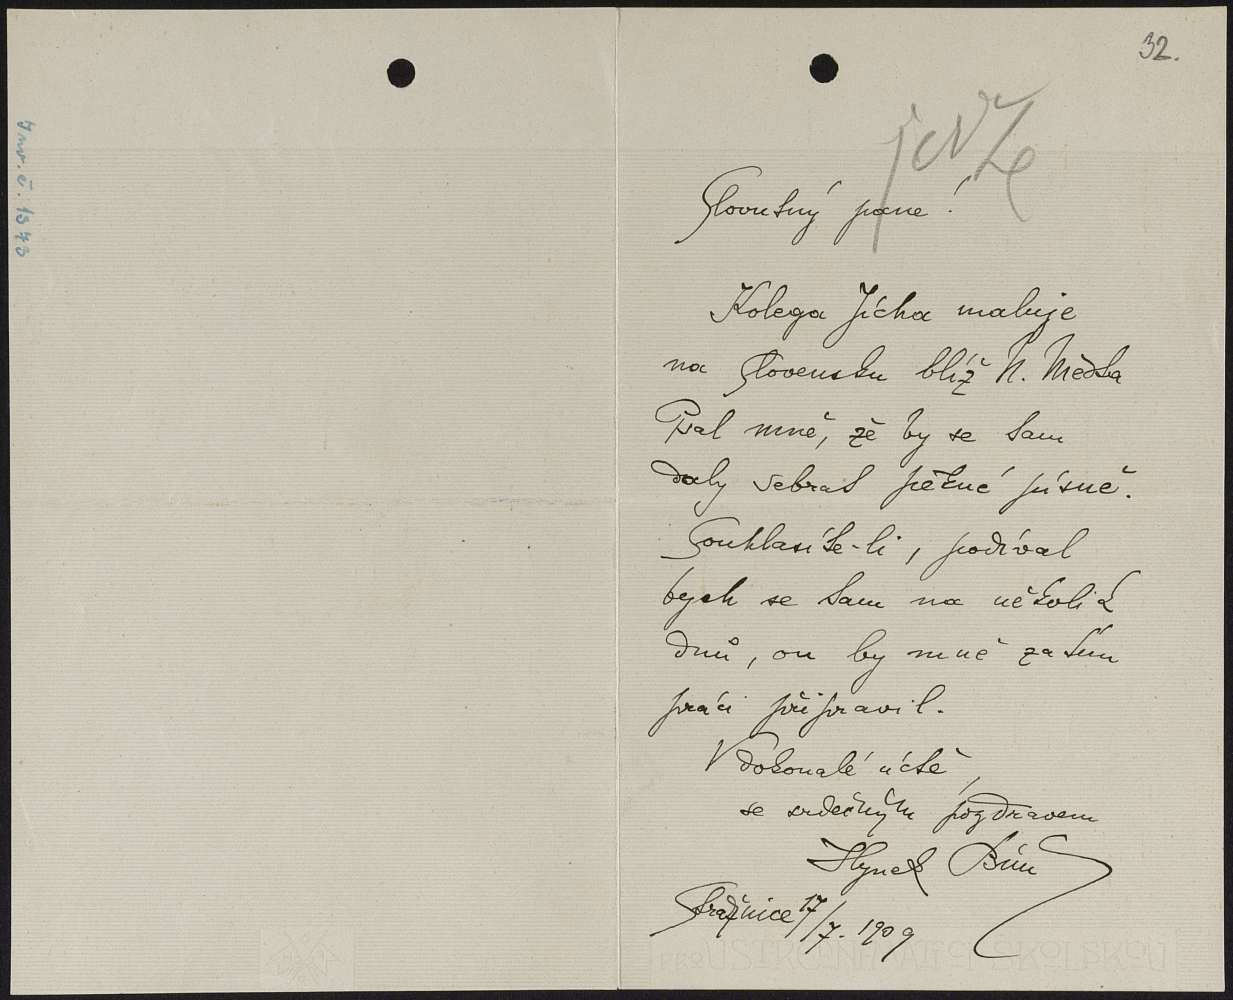 32.
Inv. č. 1373
Slovutný pane!
Kolega Jícha maluje
na Slovensku blíž N. Města
Psal mně, že by se tam
daly sebrat pěkné písně.
Souhlasíte-li, podíval
bych se tam na několik
dnů, on by mně zatím
práci připravil.
V dokonalé úctě,
se srdečným pozdravem
Hynek Bím
Strážnice 17/7. 1909
PRO ÚSTŘEDNÍ MATICI ŠKOLSKOU